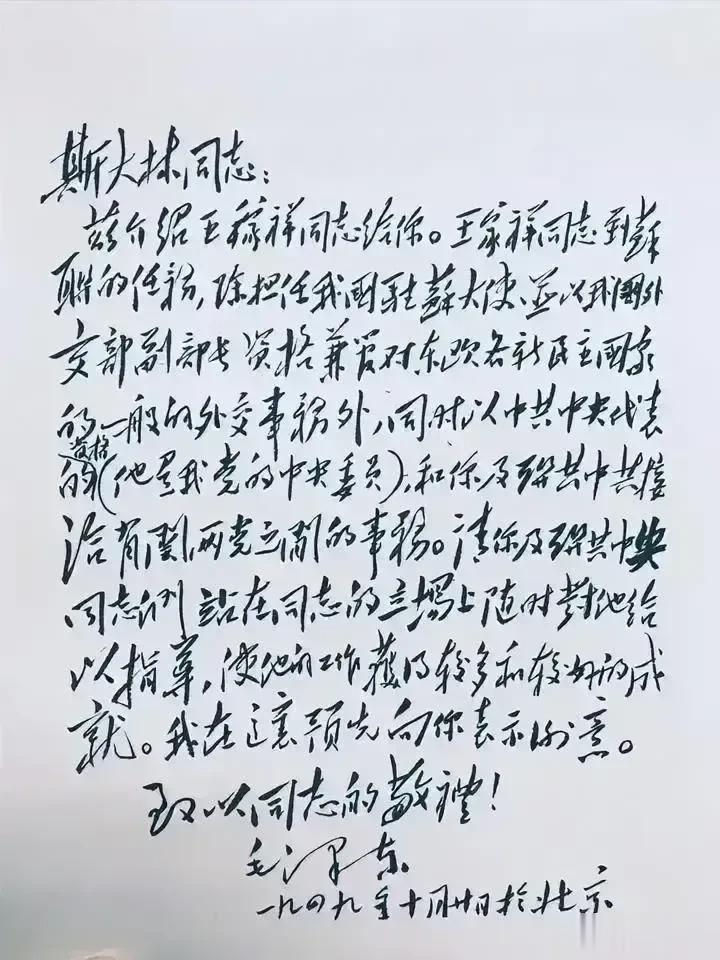 斯大林同志：
兹介绍王稼祥同志给你。王家祥同志到蘇
联的任務，除担任我國駐蘇大使、並以我國外
交部副部长资格兼管对东欧各新民主國家
的一般的外交事務外，同时以中共中央代表
资格
的（他是我党的中央委员），和你及联共中央接
洽有関両党之間的事務。请你及联共中央
同志们站在同志的立場上随时對他给
以指導，使他的工作獲得较多和较好的成
就。我在這裏预先向你表示谢意。
致以同志的敬禮！
毛泽东
一九四九年十月廿日於北京